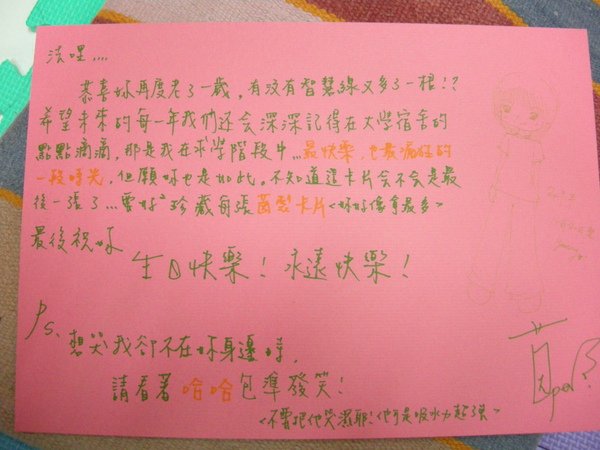 法哩....
恭喜妳再度老了一歲，有沒有智慧線又多了一根!?
希望未來的每一年我們还会深深記得在大學宿舍的
點點滴滴，那是我在求學階段中...最快樂，也最瘋狂的
一段時光，但願妳也是如此。不知道這卡片会不会是最
後一張了...要好²珍藏每張茵製卡片<妳好像拿最多>
最後祝妳
生日快樂! 永遠快樂!
Ps、
想哭我卻不在妳身邊時，
請看著哈哈包準發笑!
<不要把他哭濕耶!他可是吸水力超強>